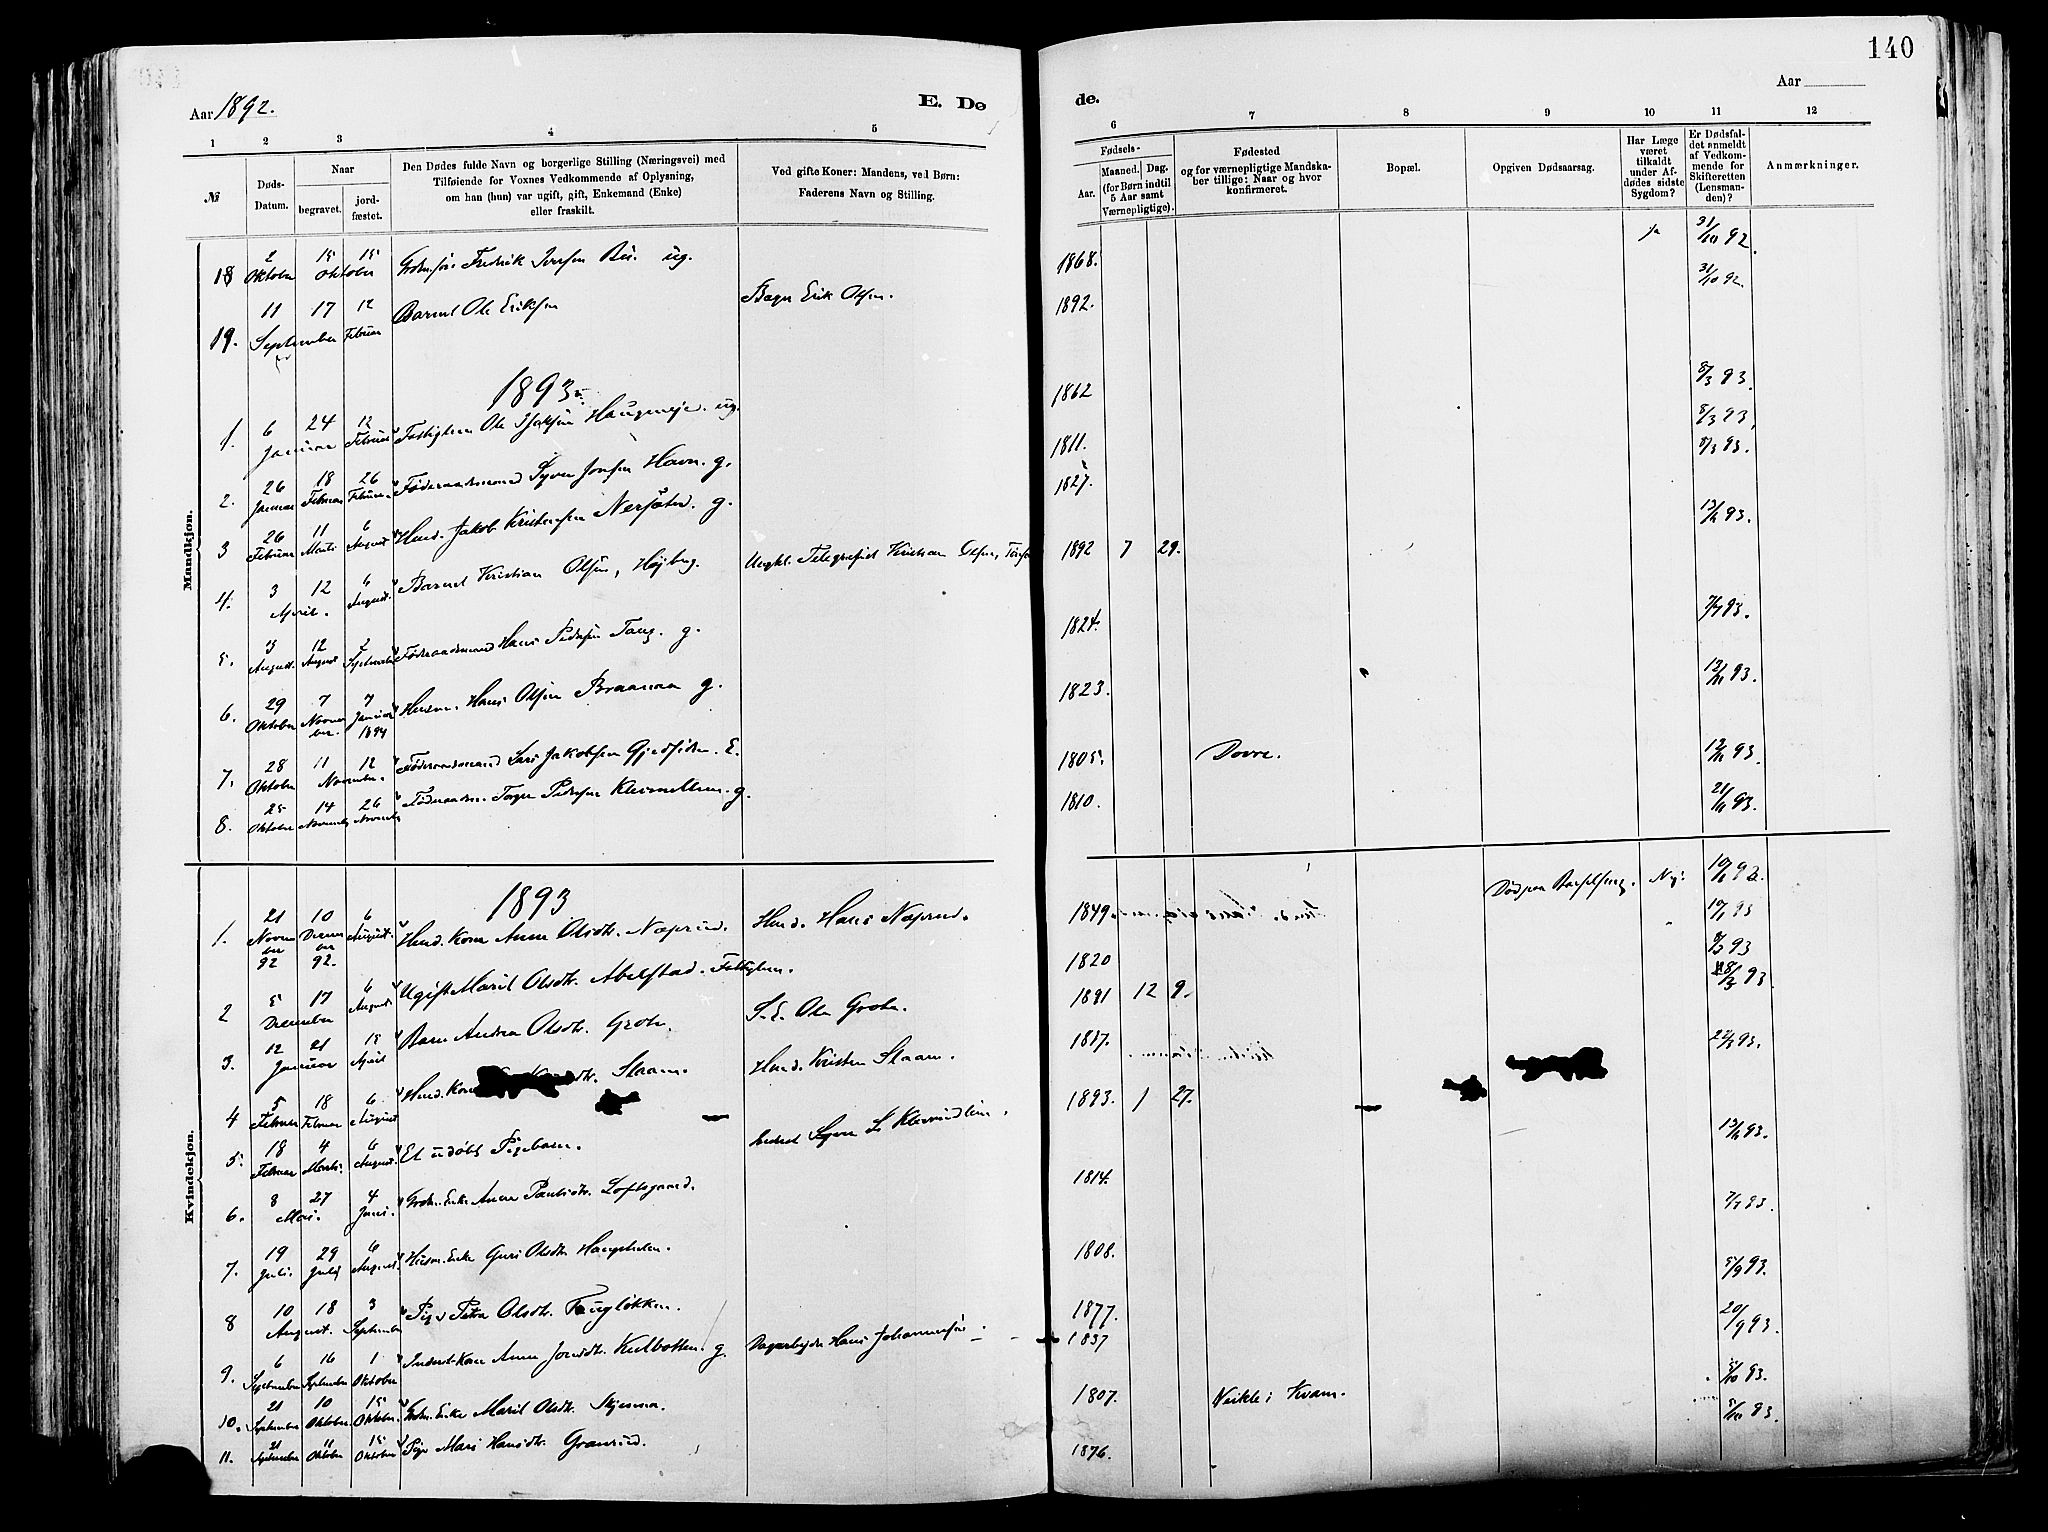 140
Aar 1892.
E. De
de.
Aar
1 2 3 4 5 6 7 8 9 10 11 12
№
Døds-Datum.
Naar
begravet.
jord-fæstet.
Den Dødes fulde Navn og borgerlige Stilling (Næringsvei) med
Tilføiende for Voxnes Vedkommende af Oplysning,
om han (hun) var ugift, gift, Enkemand (Enke)
eller fraskilt.
Ved gifte Koner: Mandens, ved Børn:
Faderens Navn og Stilling.
Fødsels-
Aar.
Maaned. Dag.
(for Børn indtil
5 Aar samt
Værnepligtige).
Fødested
og for værnepligtige Mandska-
ber tillige: Naar og hvor
konfirmeret.
Bopæl.
Opgiven Dødsaarsag.
Har Læge
været
tilkaldt
under Af-
dødes sidste
Sygdom?
Er Dødsfal-
det anmeldt
af Vedkom-
mende for
Skifteretten
(Lensman-
den)?
Anmærkninger.
Mandkjøn.
18 2 Oktober 15 15 Oktober Fredrik Iversen ug. 1868. ja 31/10 92.
19. 11 September 17 12 Februar Barnet Ole Eriksen Erik Olsen. 1892. 31/10 92.
1893.
1. 6 Januar 24 12 Februar Ole ug. 1862 8/3 93.
2. 26 Januar 18 Februar 26 Februar Føderaadsmand Syver Jonsen Havn. g. 1811. 8/3 93.
3 26 Februar 11 Marts 6 August Husmd. Jakob Kristensen g. 1827. 8/3 93.
4. 3 April. 12 6 August. Barnet Kristian Olsen, Højberg. Ungkl. Telegrafist Kristian Olsen, 1892 7 29. 13/ 93.
5. 5 August. 12 August 2 September Føderaadsmand Hans Pedersen Tang. g. 1824. 7/ 93.
6. 29 Oktober 7 Novem ber. 7 Januar 1894 Husm. Hans Olsen Braanaa g. 1823. 12/11 93.
7. 28 Oktober 11 12 November. Føderaadsmand Lars Jakobsen E. 1805. Dovre. 12/11 93.
8. 25 Oktober 14 November 26 November Føderaadsm. Pedersen g. 1810. 21/11 93.
Kvindekjøn.
1893
1. 21 Novem ber 92 10 Decem ber 92. 6 August. Husmd. Kone Anne Olsdtr. Næprud. Husmd. Hans Næprud. 1849. Død paa Barselseng. Nej. 10/ 92.
2 5 December 17 6 August Ugift Marit Olsdtr. Abelstad. Fattiglem. 1820 10/1 93
3. 12 Januar 21 15 April Barn Andrea Olsdtr. Grote. S. E. Ole Grote. 1891 12 9. 8/3 93
4 5 Februar 18 Februar 6 August Husmd. Kone Slaam. Husmd. Kristen Slaam. 1817. 8/3 93
5. 18 Februar 4 Marts. 6 August. Et udøbt Pigebarn. Inderst Syver 1893. 1 27. 22/3 93.
6. 8 Mai. 27 4 Juni. Grdm. Enke Anne Paulsdtr. Loftsgaard. 1814. 13/6 93.
7. 19 Juli. 29 Juli 6 August. Husm. Enke Guri Olsdtr. 1808. 7/ 93.
8 10 August. 18 3 September Pige Petra Olsdtr. 1877. 5/9 93.
9. 6 September 16 September 1 Oktober Inderst Kone Anne Jonsdtr. Kulbotten. g. Dagarbejder Hans Johannesen 1837 20/9 93.
10. 21 September 10 Oktober 15 Oktober. Grdm. Enke Marit Olsdtr. 1807. Veikle i Kvam. 5/10 93.
11. 21 September 11 Oktober 15 Oktober Pige Mari Hansdtr. Granrud. 1876. 5/10 93.